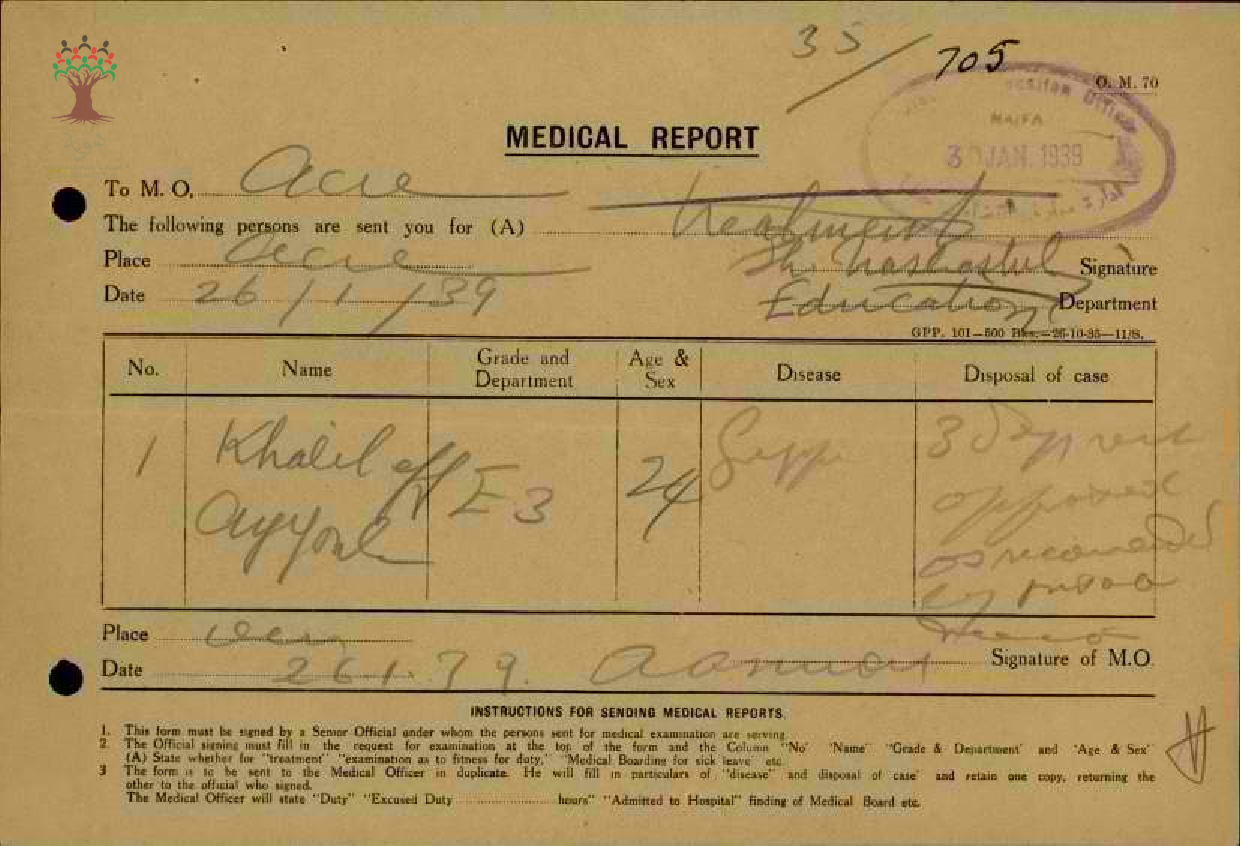 35/705
O. M. 70
HAIFA
30 JAN. 1939
MEDICAL REPORT
To M. O. Acre
The following persons are sent you for (A) treatment
Place Acre Signature
Date 26/1/39 Education Department
GPP. 101—500 Bks.—26-10-35—11/S.
No. Name Grade and Department Age & Sex Disease Disposal of case
1 Khalil eff E3 24 3 days rest
Ayyoub
approved
as recommended
by
Place
Date 26.1.39. Signature of M.O.
INSTRUCTIONS FOR SENDING MEDICAL REPORTS.
1. This form must be signed by a Senior Official under whom the persons sent for medical examination are serving.
2. The Official signing must fill in the request for examination at the top of the form and the Column "No" "Name" "Grade & Department" and "Age & Sex"
(A) State whether for "treatment" "examination as to fitness for duty," "Medical Boarding for sick leave" etc.
3 The form is to be sent to the Medical Officer in duplicate. He will fill in particulars of "disease" and disposal of case" and retain one copy, returning the
other to the official who signed.
The Medical Officer will state "Duty" "Excused Duty ........ hours" "Admitted to Hospital" finding of Medical Board etc.